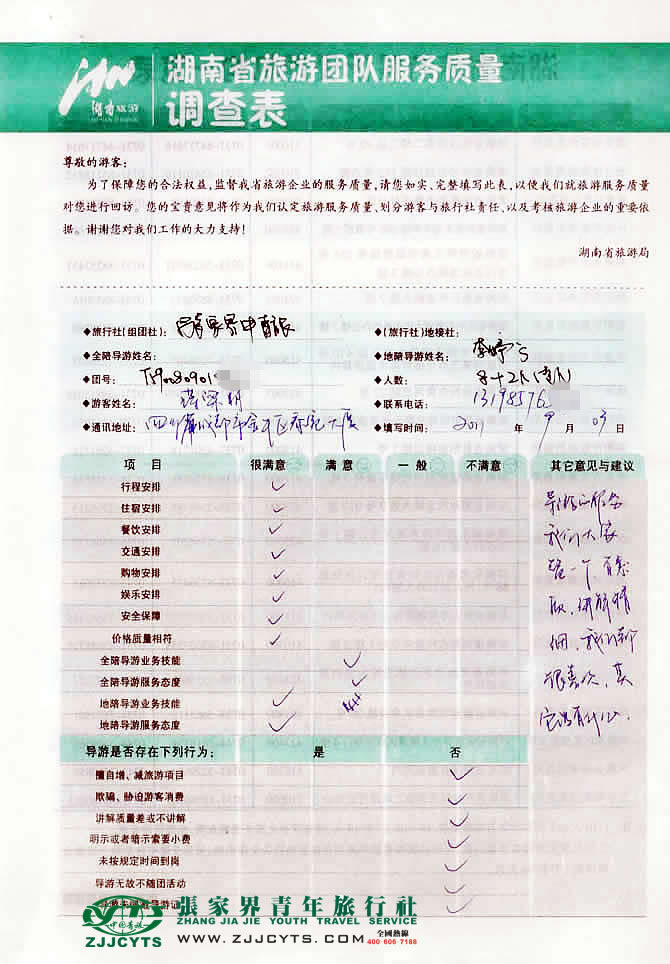 湖南旅游
湖南省旅游团队服务质量
调查表
尊敬的游客：
为了保障您的合法权益,监督我省旅游企业的服务质量,请您如实、完整填写此表,以使我们就旅游服务质量
对您进行回访。您的宝贵意见将作为我们认定旅游服务质量、划分游客与旅行社责任、以及考核旅游企业的重要依
据。谢谢您对我们工作的大力支持!
湖南省旅游局
◆旅行社(组团社)： 张家界中青旅 ◆(旅行社)地接社：
◆全陪导游姓名： ◆地陪导游姓名： 李婷
◆团号： ◆人数： 8+2
◆游客姓名： ◆联系电话： 13198576
◆通讯地址： 四川省成都市金牛区 ◆填写时间： 2011 年 9 月 03 日
项 目 很满意 满 意 一 般 不满意 其它意见与建议
行程安排 ✓
住宿安排 ✓
餐饮安排 ✓
交通安排 ✓
购物安排 ✓
娱乐安排 ✓
安全保障 ✓
价格质量相符 ✓
全陪导游业务技能 ✓
全陪导游服务态度 ✓
地陪导游业务技能 ✓
地陪导游服务态度 ✓
导游的服务
我们大家
讲解精
细，我们都
很喜欢，其
它没有什么.
导游是否存在下列行为： 是 否
擅自增、减旅游项目 ✓
欺骗、胁迫游客消费 ✓
讲解质量差或不讲解 ✓
明示或者暗示索要小费 ✓
未按规定时间到岗 ✓
导游无故不随团活动 ✓
导游证 ✓
中国青旅
ZJJCYTS
張家界青年旅行社
ZHANG JIA JIE YOUTH TRAVEL SERVICE
WWW.ZJJCYTS.COM
全國熱線
400 606 7188